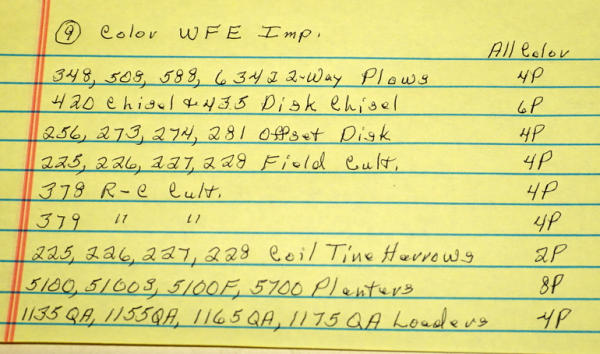 ⑨ Color WFE Imp.
All Color
348, 508, 588, 6342 2-Way Plows 4P
420 Chisel & 435 Disk Chisel 6P
256, 273, 274, 281 Offset Disk 4P
225, 226, 227, 228 Field Cult. 4P
378 R-C Cult. 4P
379 " " 4P
225, 226, 227, 228 Coil Tine Harrows 2P
5100, 5100S, 5100F, 5700 Planters 8P
1135QA, 1155QA, 1165QA, 1175QA Loaders 4P